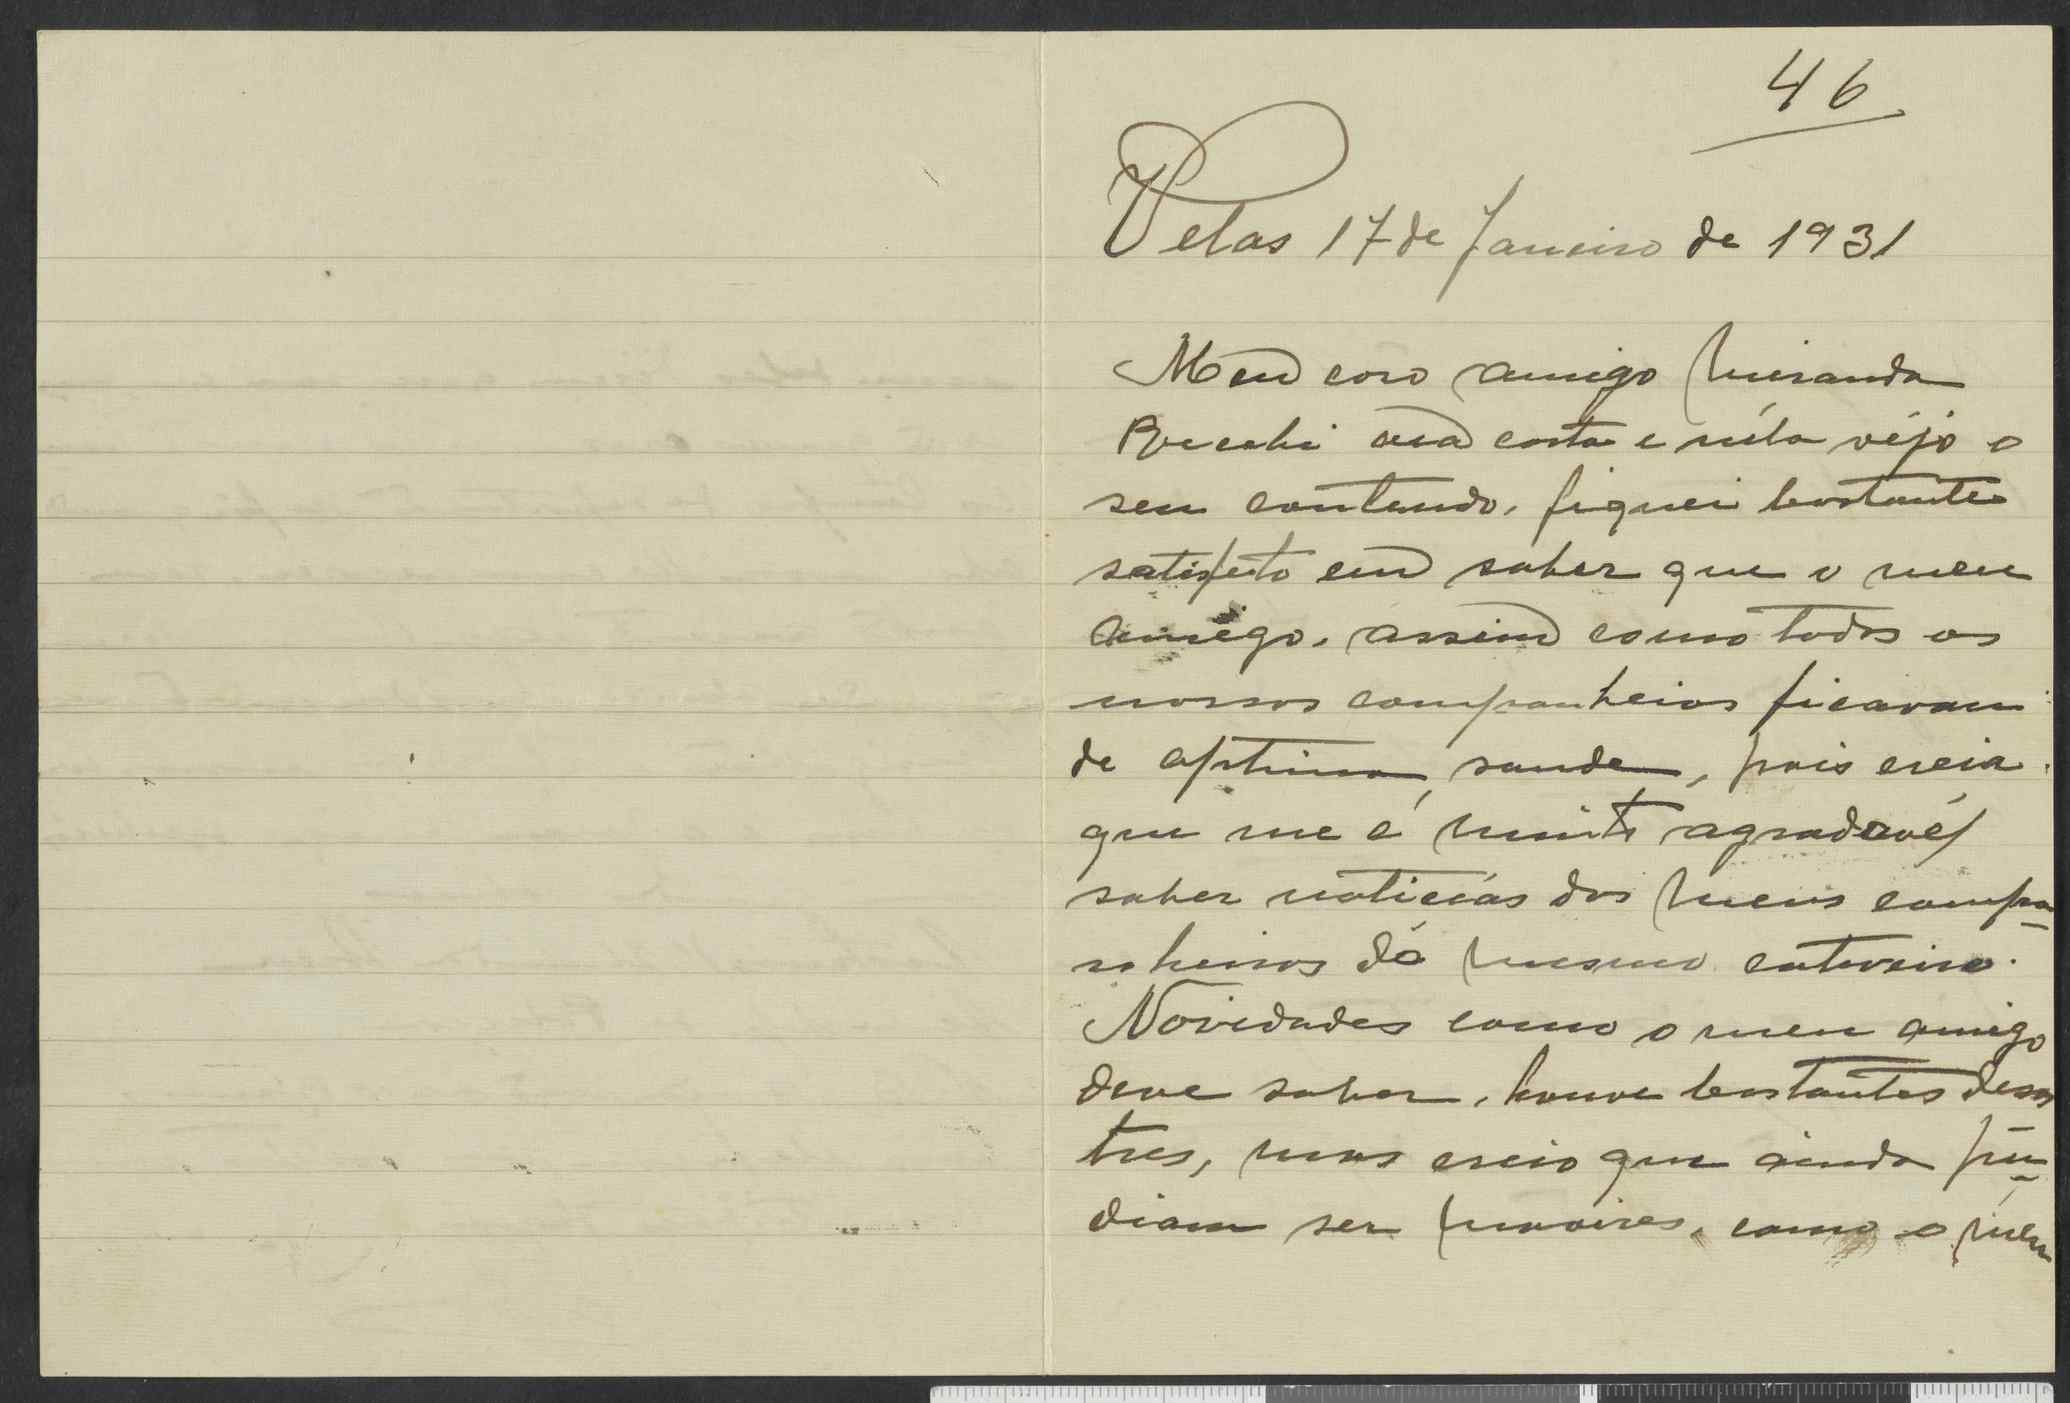 46
Velas 17 de Janeiro de 1931
Meu caro amigo Miranda
Recebi sua carta e néla véjo o
seu contendo, fiquei bastante
satisfeito em saber que o meu
amigo, assim como todos os
nossos companheios ficavam
de optima saude, pois creia
que me é muito agradavél
saber noticías dos meus compa-
nheiros do mesmo cativeiro.
Novidades como o meu amigo
deve saber, houve bastantes desas
tres, mas creio que ainda pu-
diam ser maoires, como o meu